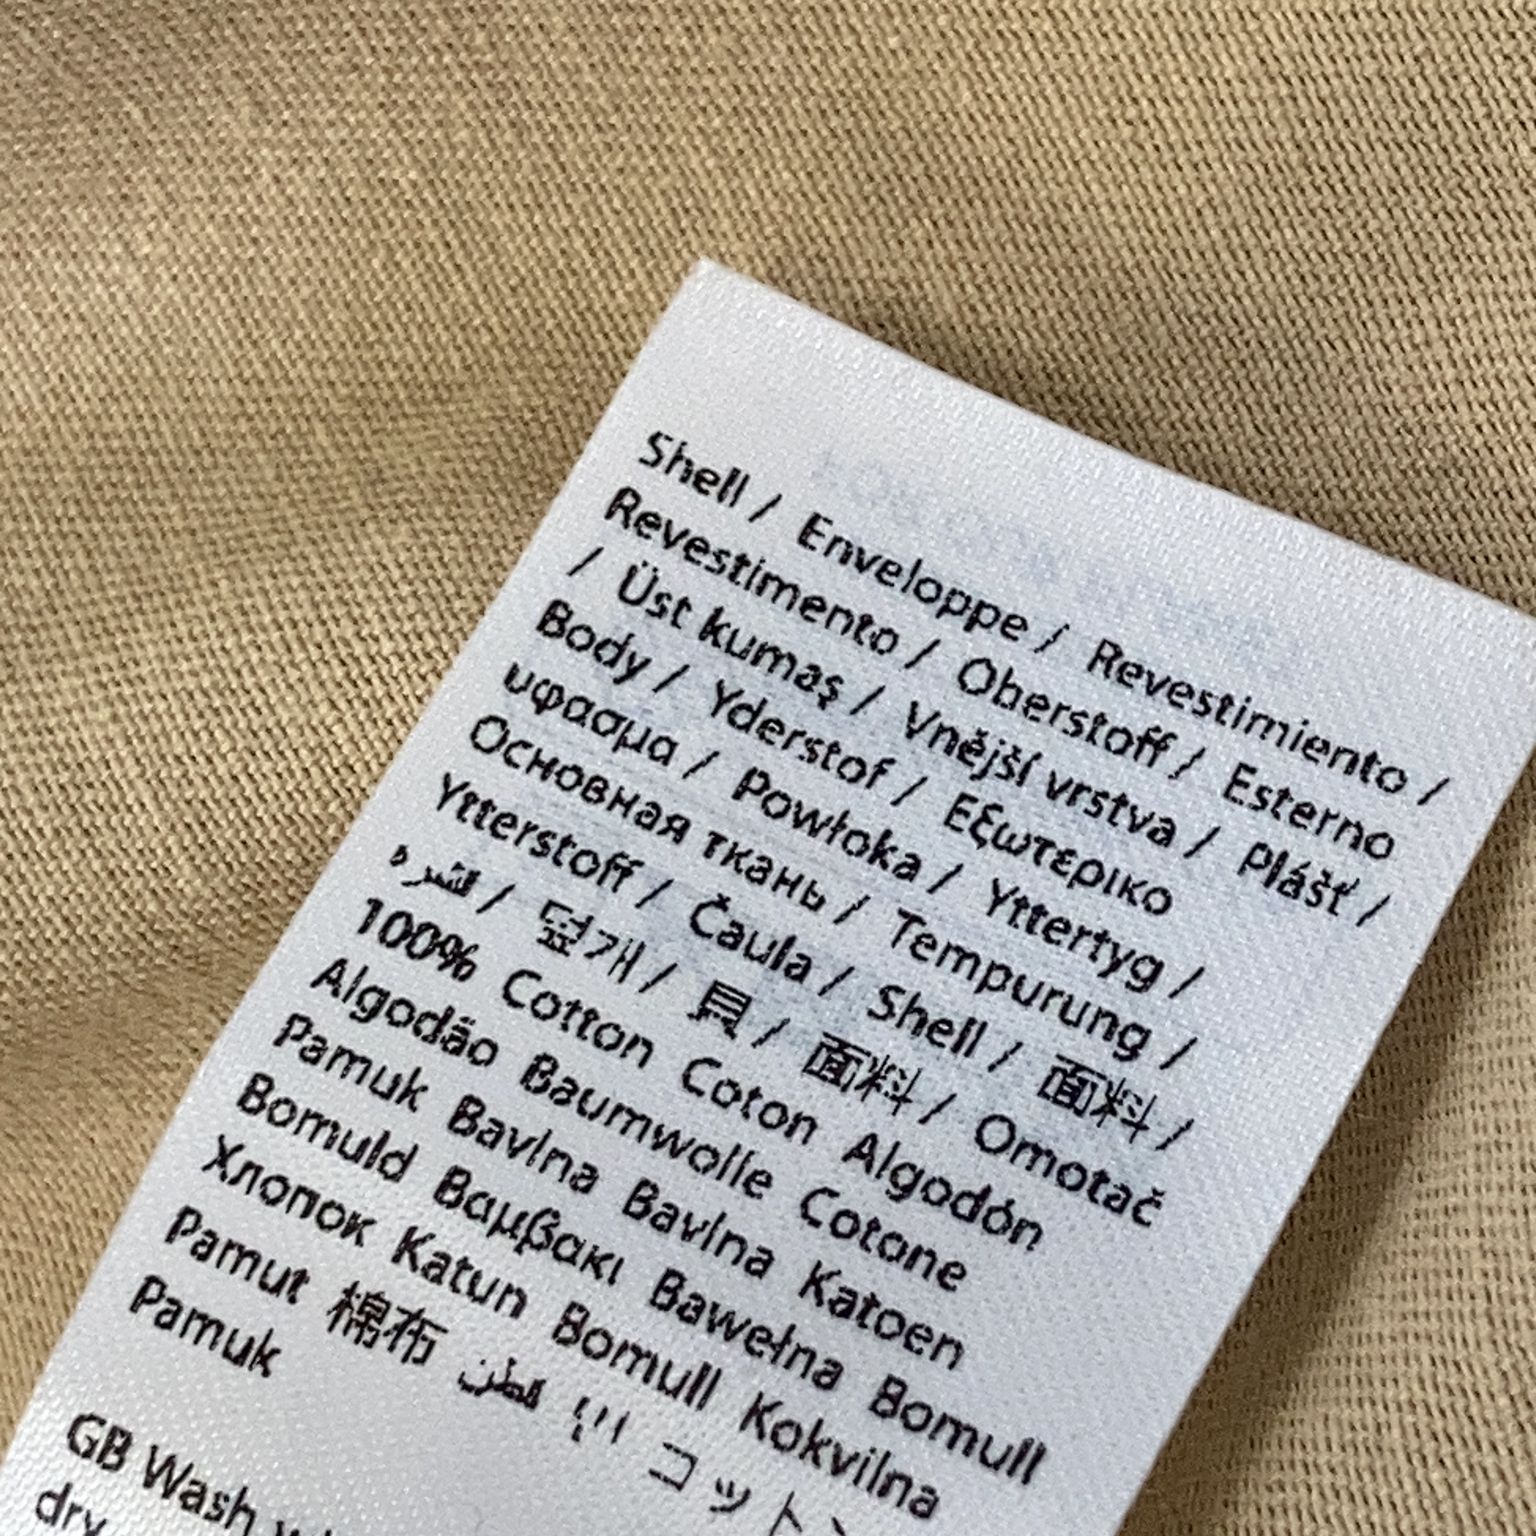 Shell / Enveloppe / Revestimiento /
Revestimento / Oberstoff / Esterno
/ Üst kumaş / Vnější vrstva / Plášť /
Body / Yderstof / Εξωτερικο
υφασμα / Powłoka / Yttertyg /
Основная ткань / Tempurung /
Ytterstoff / Čaula / Shell / 面料 /
/ 덮개 / 貝 / 面料 / Omotač
100% Cotton Coton Algodón
Algodäo Baumwolle Cotone
Pamuk Bavlna Bavlna Katoen
Bomuld Βαμβακι Bawełna Bomull
Хлопок Katun Bomull Kokvilna
Pamut 棉布 قطن コット
Pamuk
GB Wash
dry